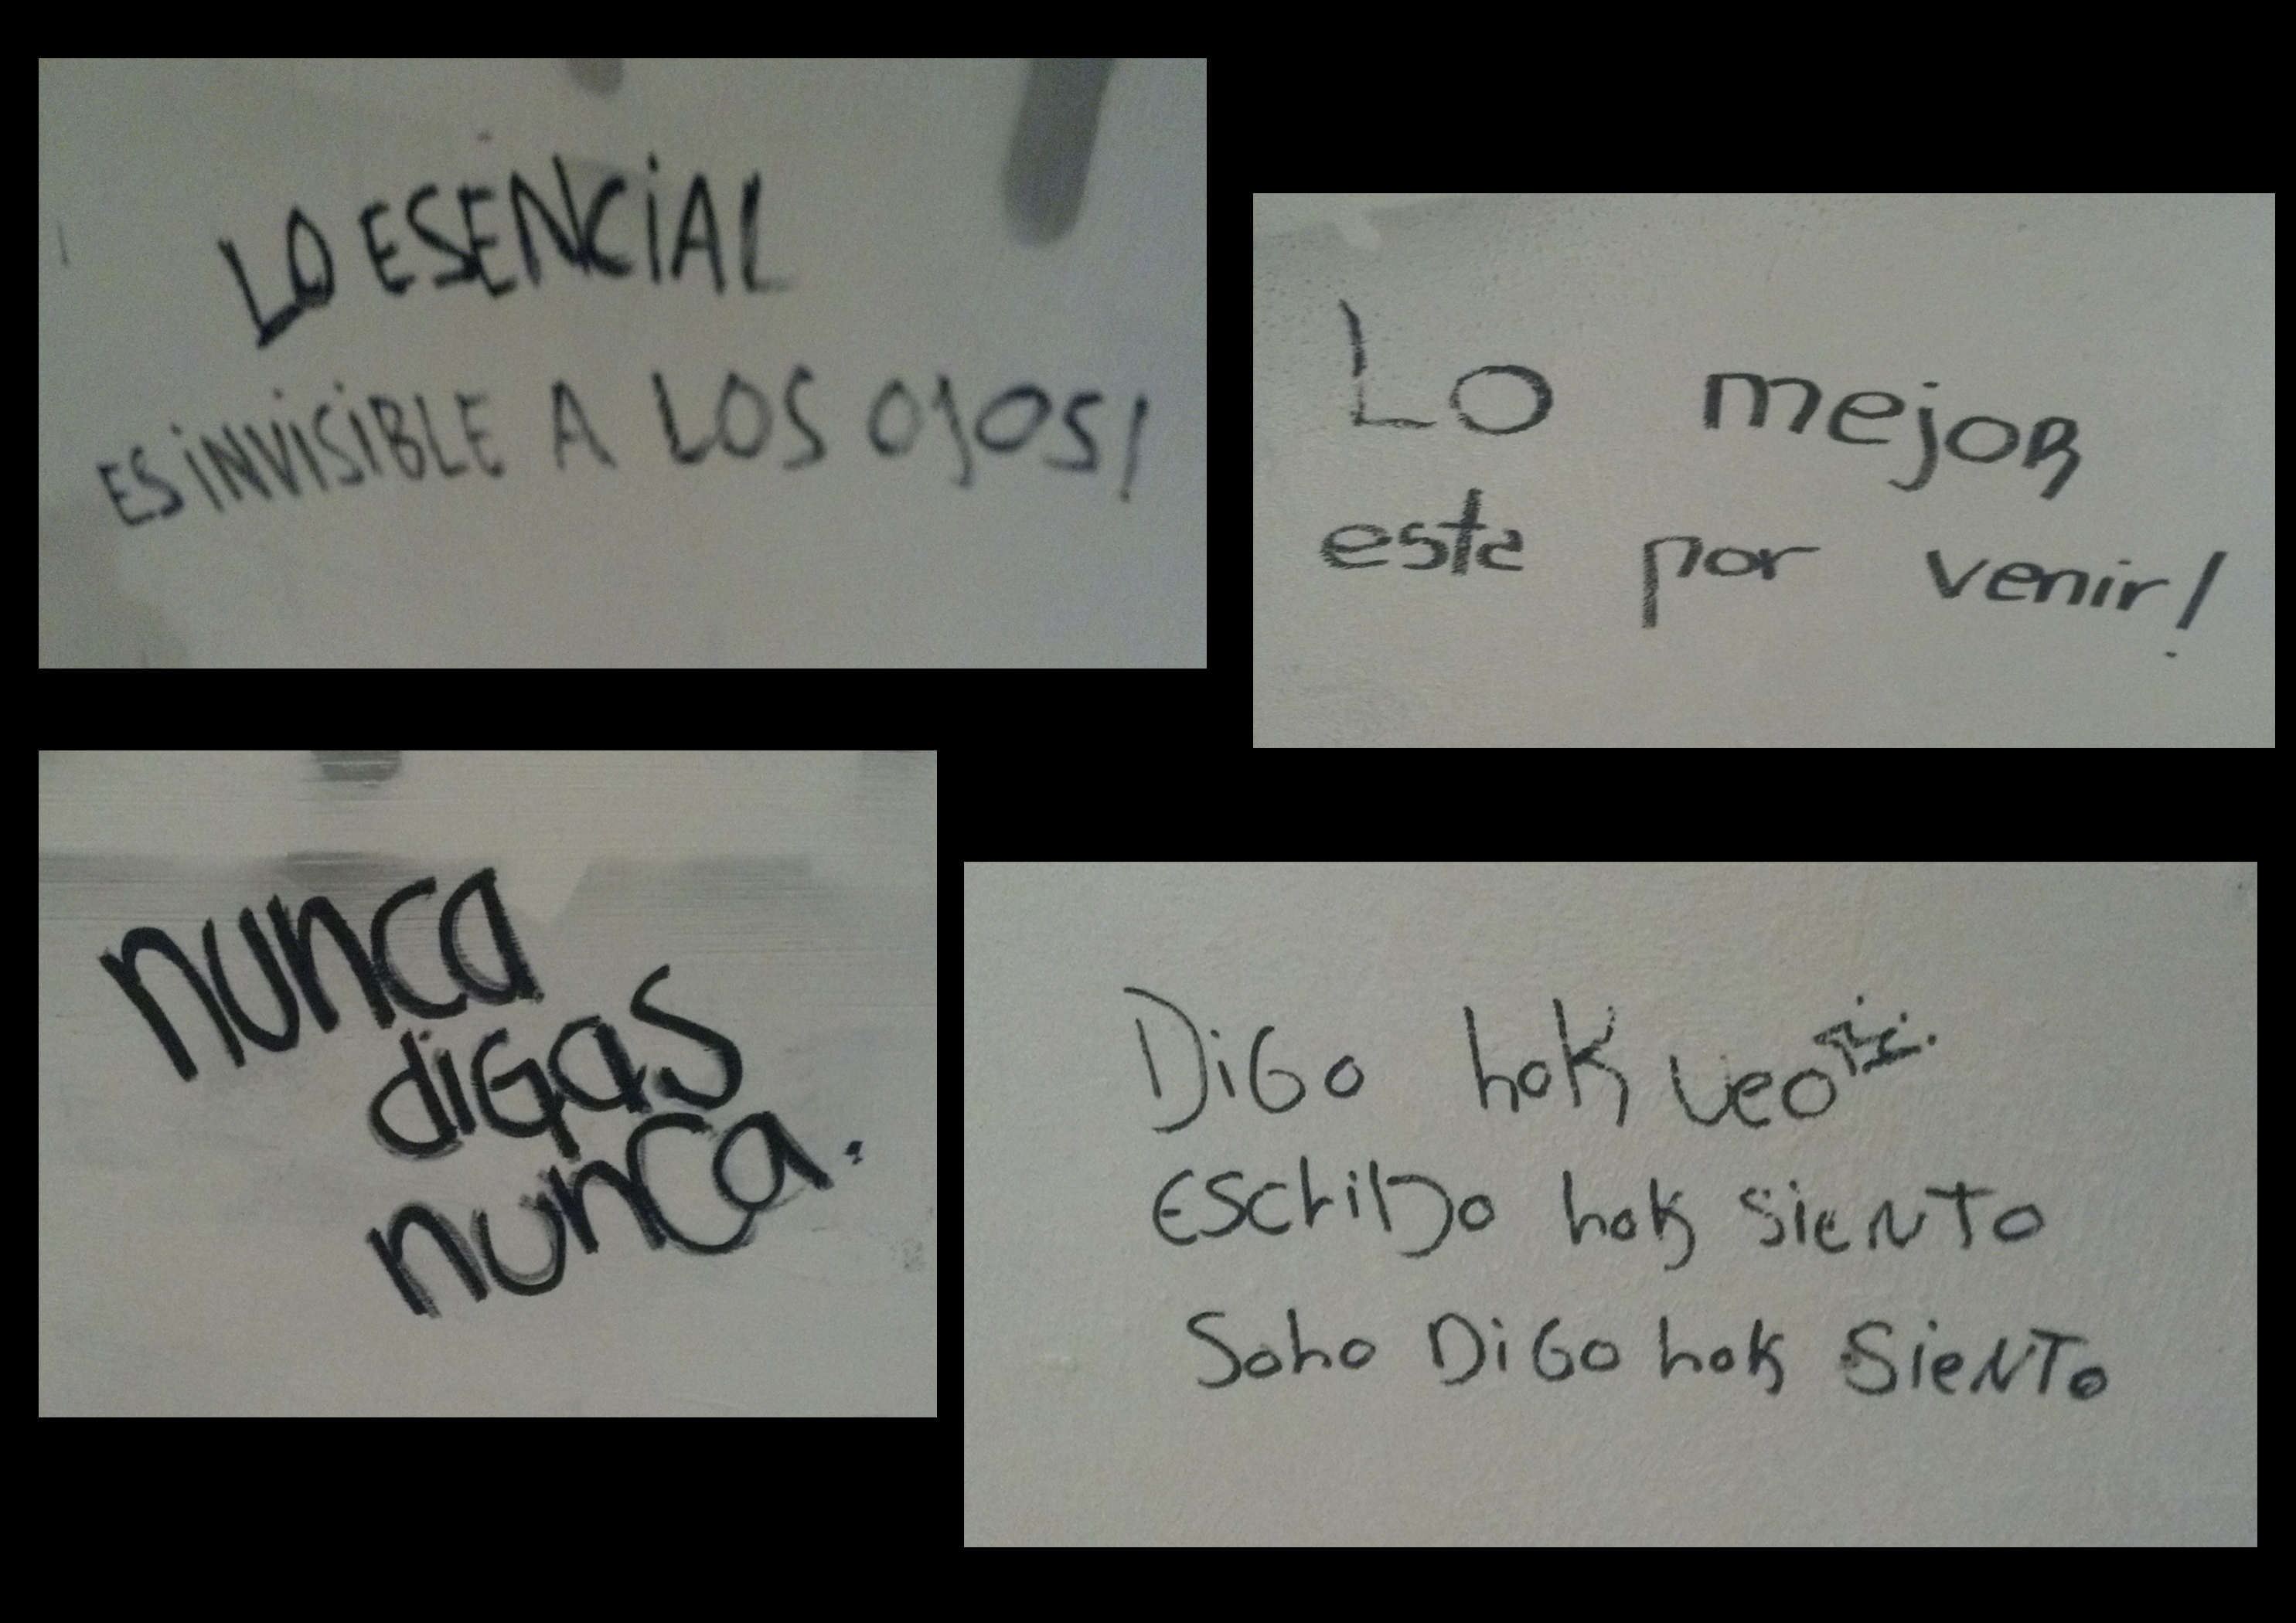 LO ESENCIAL
ES INVISIBLE A LOS OJOS!
Lo mejor
esta por venir!
nunca
digas
nunca.
DiGo hok veo
EScriBo hok SieNTo
Soho DiGo hok SieNTo